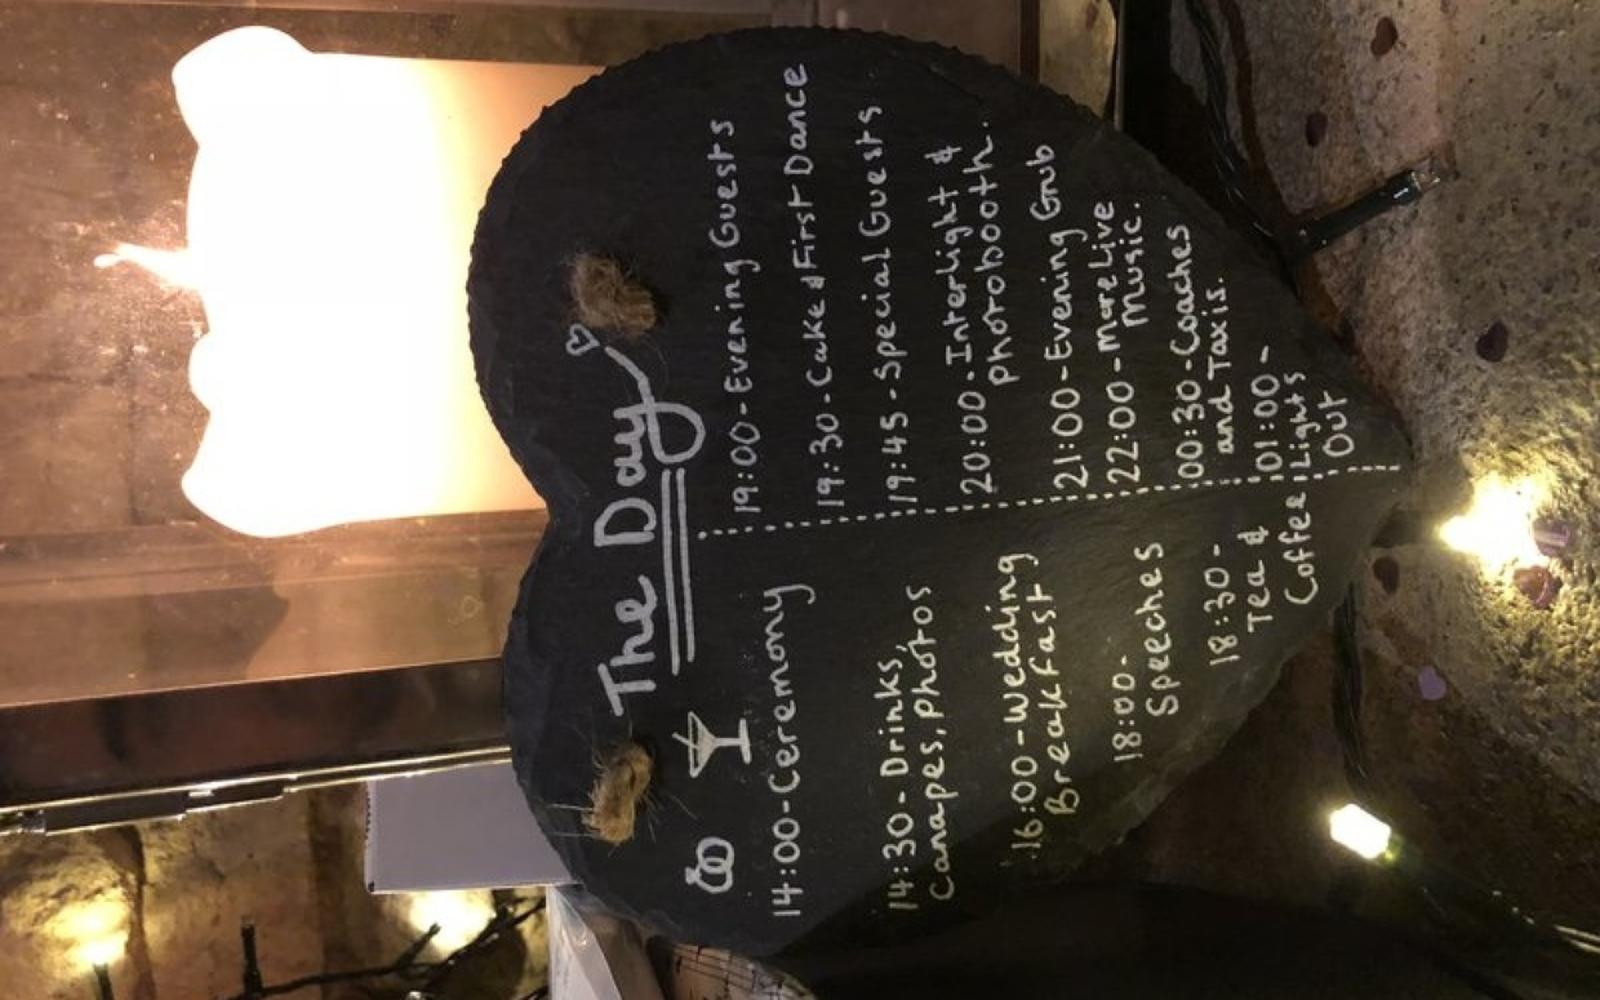 The Day
14:00-Ceremony
14:30-Drinks,
Canapes, photos
16:00-Wedding
Breakfast
18:00-
Speeches
18:30-
Tea &
Coffee
19:00-Evening Guests
19:30-Cake & First Dance
19:45-Special Guests
20:00-Interlight &
photobooth.
21:00-Evening Grub
22:00-More Live
Music.
00:30-Coaches
and Taxis.
01:00-
Lights
Out